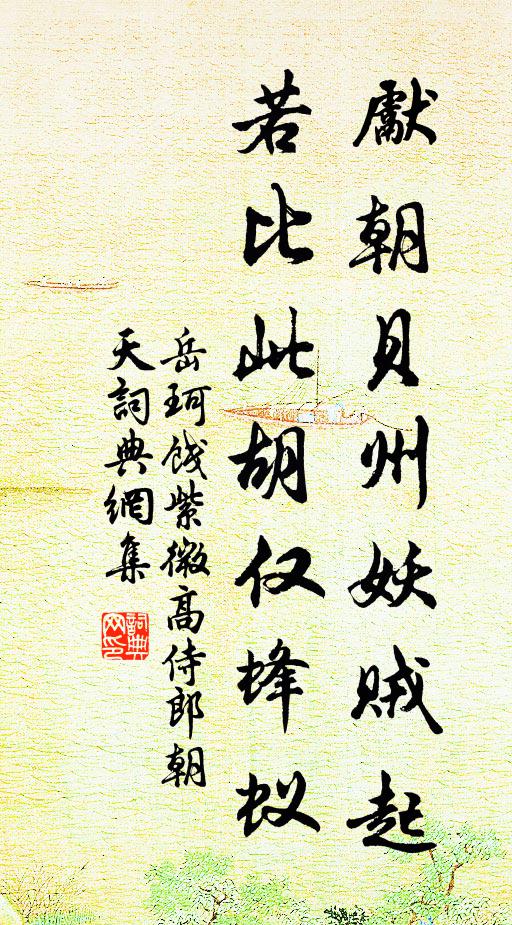 獻朝貝州妖賊起
若比此胡仅蜂蚁
岳珂餞紫微高侍郎朝
天詞典網集
詞典网印